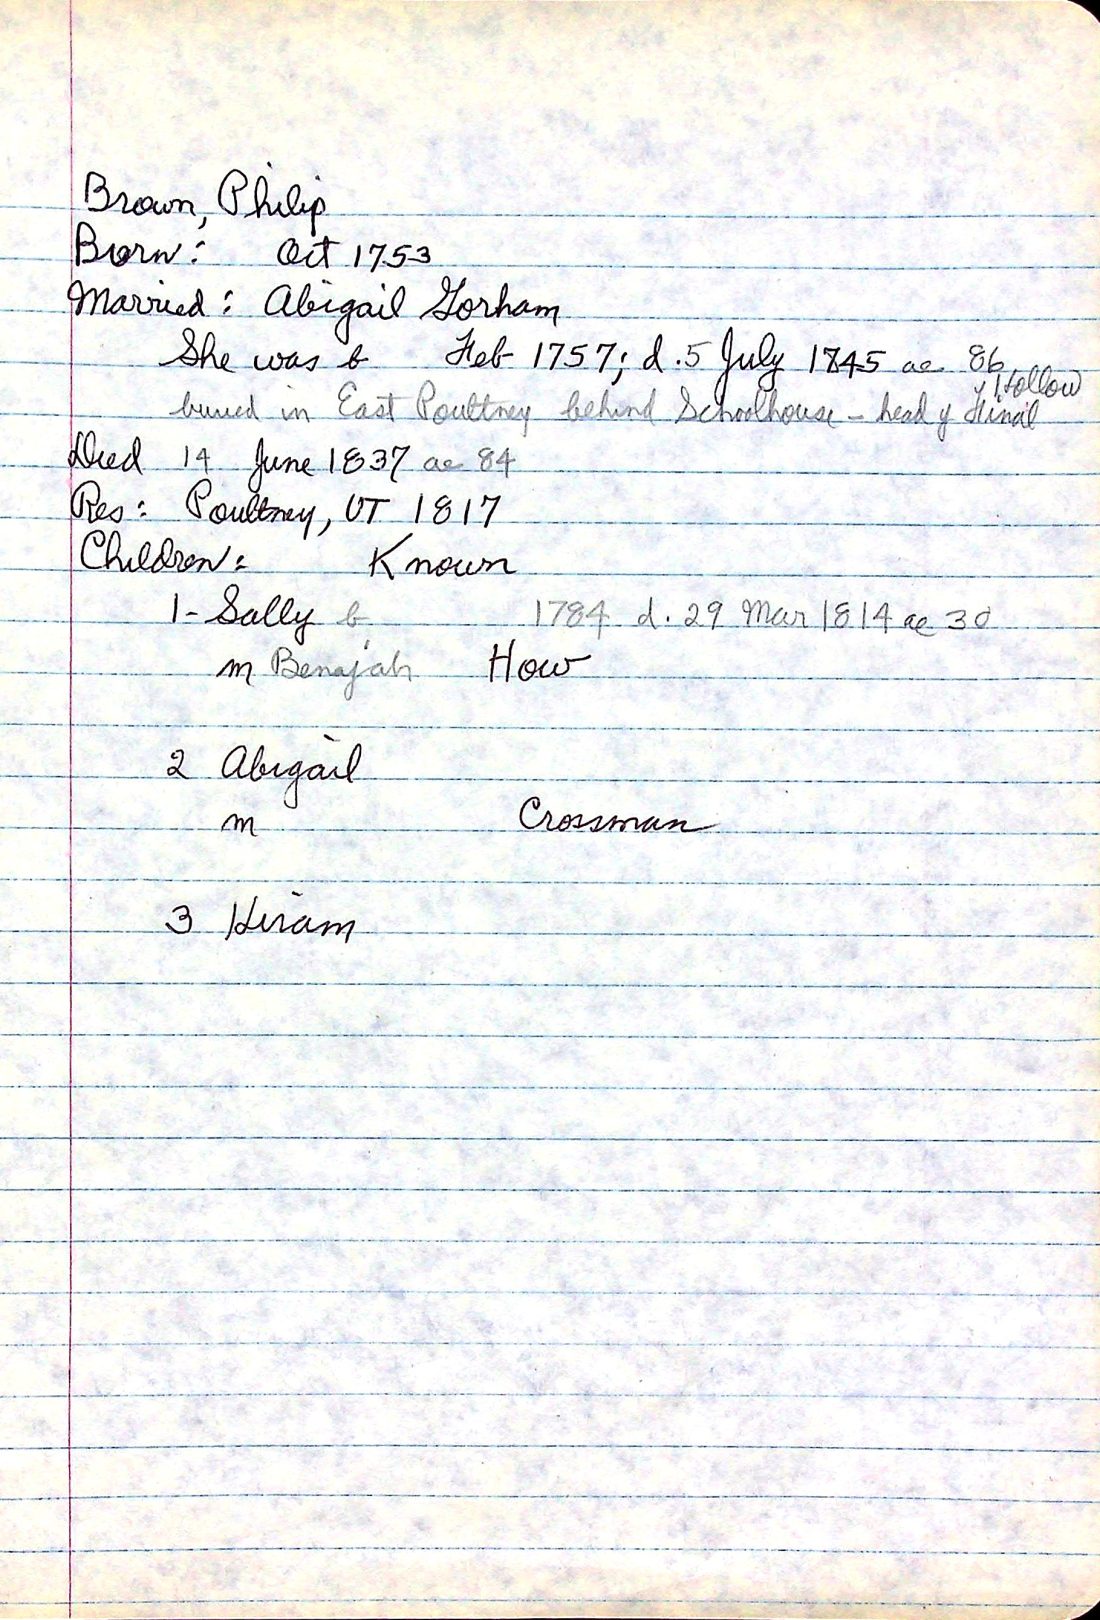 Brown, Philip
Born: Oct 1753
Married: Abigail Gorham
She was b Feb 1757; d. 5 July 1845 ae 86
buried in East Poultney behind Schoolhouse – head of Hollow
Died 14 June 1837 ae 84
Res: Poultney, VT 1817
Children: Known
1- Sally b 1784 d. 29 Mar 1814 ae 30
m Benajah How
2 Abigail
m Crossman
3 Hiram